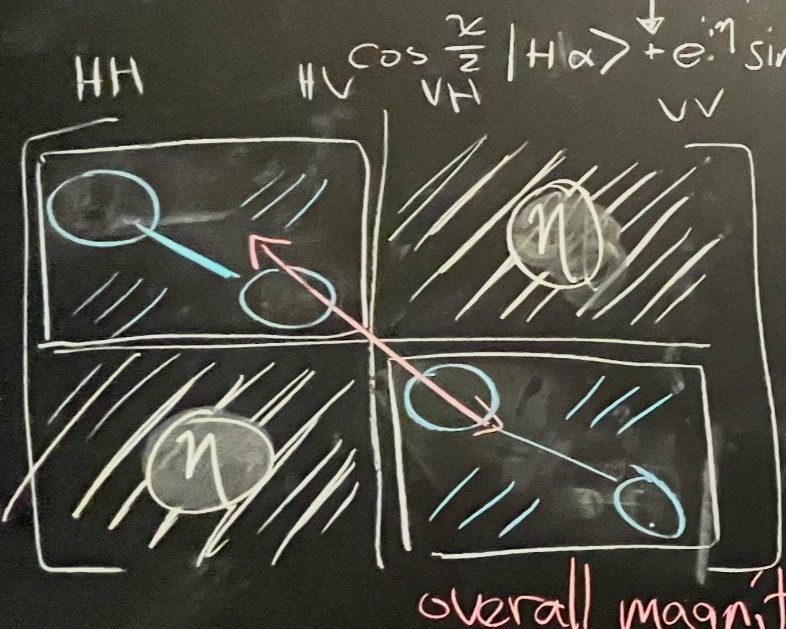 cos x/2 |Hα> + e^{iη} sin
HH HV VH VV
η
η
overall magnit